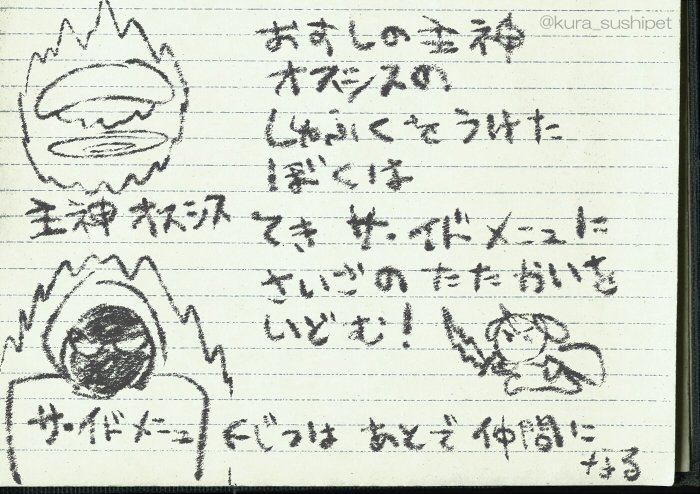 @kura_sushipet
おすしの主神
オスシスの
しゅふくをうけた
ぼくは
主神 オスシス
てき サ・イドメニュに
さいごの たたかいを
いどむ!
サ・イドメニュ ←じつは あとで 仲間に
なる